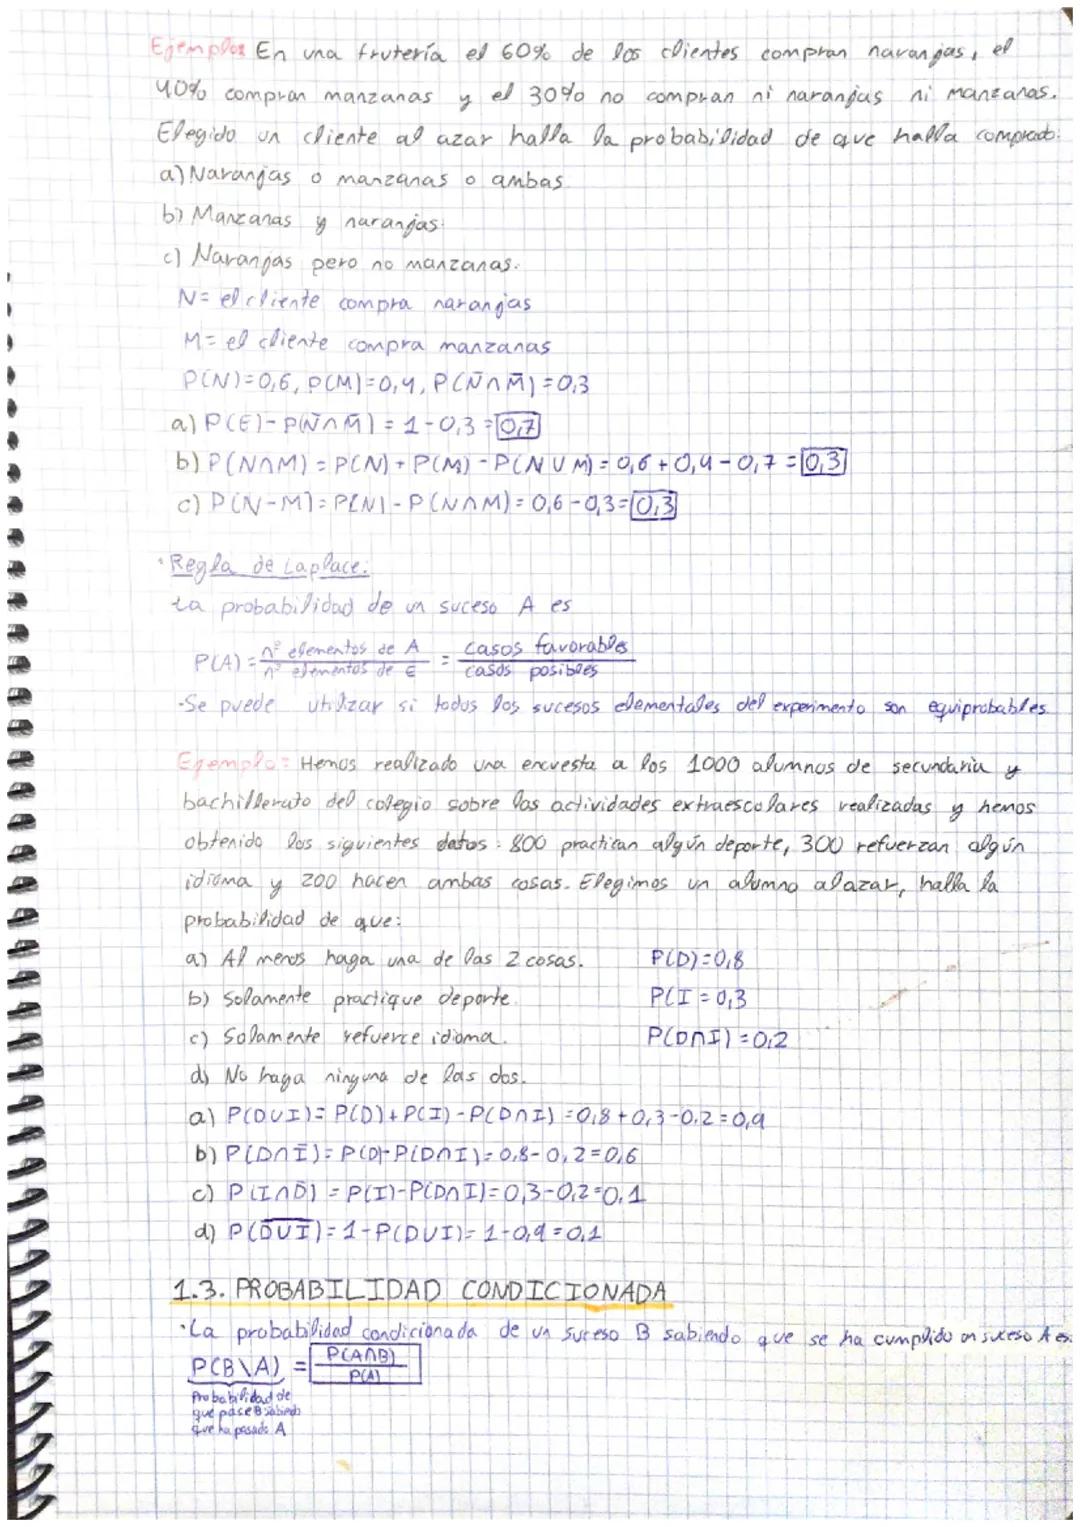 Ejemplo: En una frutería el 60% de los clientes compran naranjas, el
40% compran manzanas y el 30% no compran ni naranjas ni manzanas.
Elegido un cliente al azar halla la probabilidad de que halla comprado:
a) Naranjas o manzanas o ambas
b) Manzanas y naranjas.
c) Naranjas pero no manzanas.
N= el cliente compra naranjas
M= el cliente compra manzanas
P(N)=0,6, P(M)=0,4, P(N̄∩M̄)=0,3
a) P(E)-P(N̄∩M̄)=1-0,3=0,7
b) P(N∩M)=P(N)+P(M)-P(N∪M)=0,6+0,4-0,7=0,3
c) P(N-M)=P(N)-P(N∩M)=0,6-0,3=0,3
·Regla de Laplace:
La probabilidad de un suceso A es
P(A)= nº elementos de A / nº elementos de E = casos favorables / casos posibles
-Se puede utilizar si todos los sucesos elementales del experimento son equiprobables.
Ejemplo: Hemos realizado una encuesta a los 1000 alumnos de secundaria y
bachillerato del colegio sobre las actividades extraescolares realizadas y hemos
obtenido los siguientes datos: 800 practican algún deporte, 300 refuerzan algún
idioma y 200 hacen ambas cosas. Elegimos un alumno al azar, halla la
probabilidad de que:
a) Al menos haga una de las 2 cosas. P(D)=0,8
b) Solamente practique deporte. P(I=0,3
c) Solamente refuerce idioma. P(D∩I)=0,2
d) No haga ninguna de las dos.
a) P(D∪I)=P(D)+P(I)-P(D∩I)=0,8+0,3-0,2=0,9
b) P(D∩Ī)=P(D)-P(D∩I)=0,8-0,2=0,6
c) P(I∩D̄)=P(I)-P(D∩I)=0,3-0,2=0,1
d) P(D̅∪̅I̅)=1-P(D∪I)=1-0,9=0,1
1.3. PROBABILIDAD CONDICIONADA
·La probabilidad condicionada de un suceso B sabiendo que se ha cumplido un suceso A es:
P(B\A) = P(A∩B) / P(A)
Probabilidad de
que pase B sabiendo
que ha pasado A